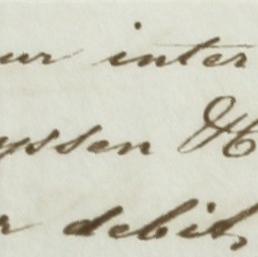 ur inter
yssen &
r debit,